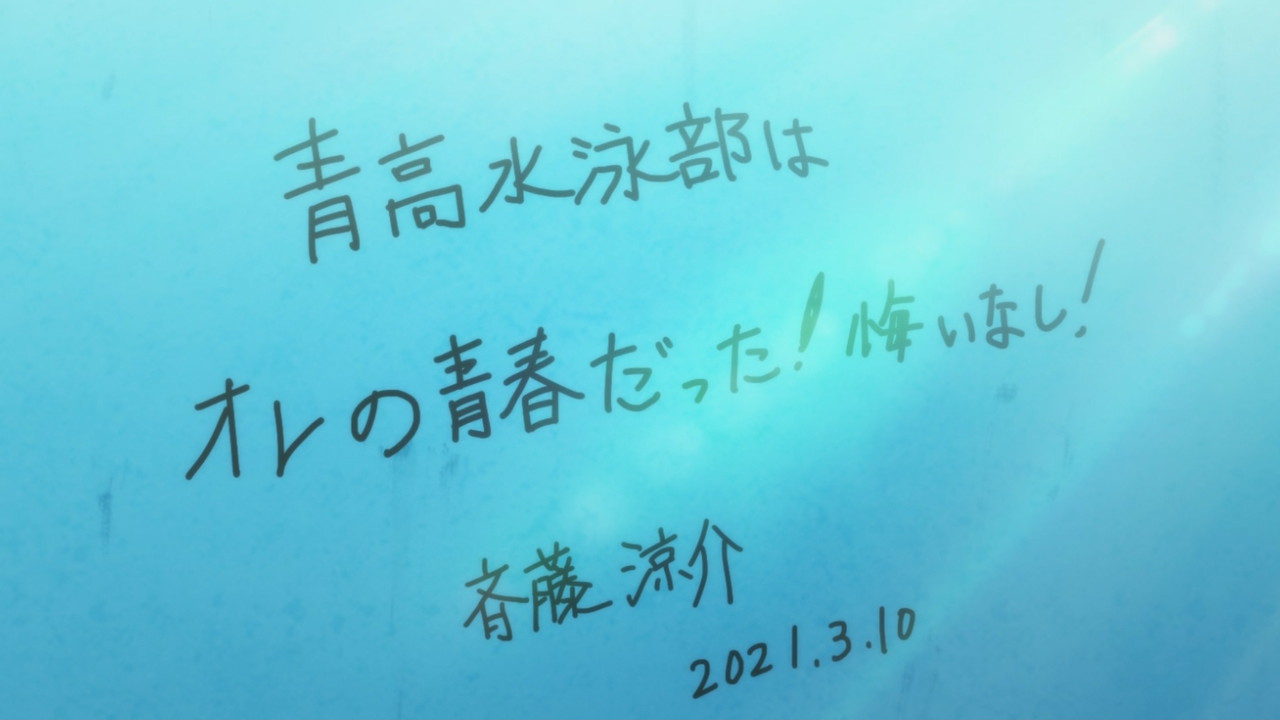 青高水泳部は
オレの青春だった!悔いなし!
斉藤涼介
2021.3.10